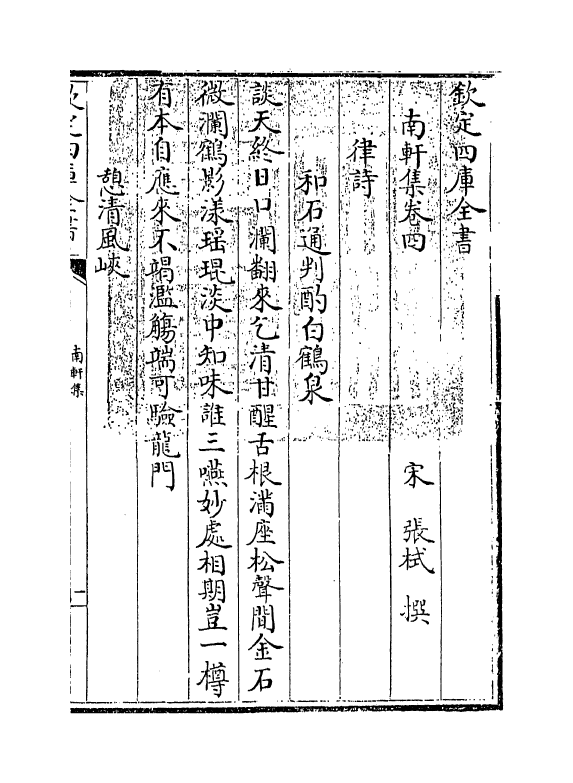 欽定四庫全書
南軒集卷四
宋 張栻 撰
律詩
和石通判酌白鶴泉
談天終日口瀾翻來乞清甘醒舌根滿座松聲間金石
微瀾鶴影漾瑶琨淡中知味誰三嚥妙處相期豈一樽
有本自應來不竭濫觴端可驗龍門
憇清風峽
欽定四庫全書
南軒集